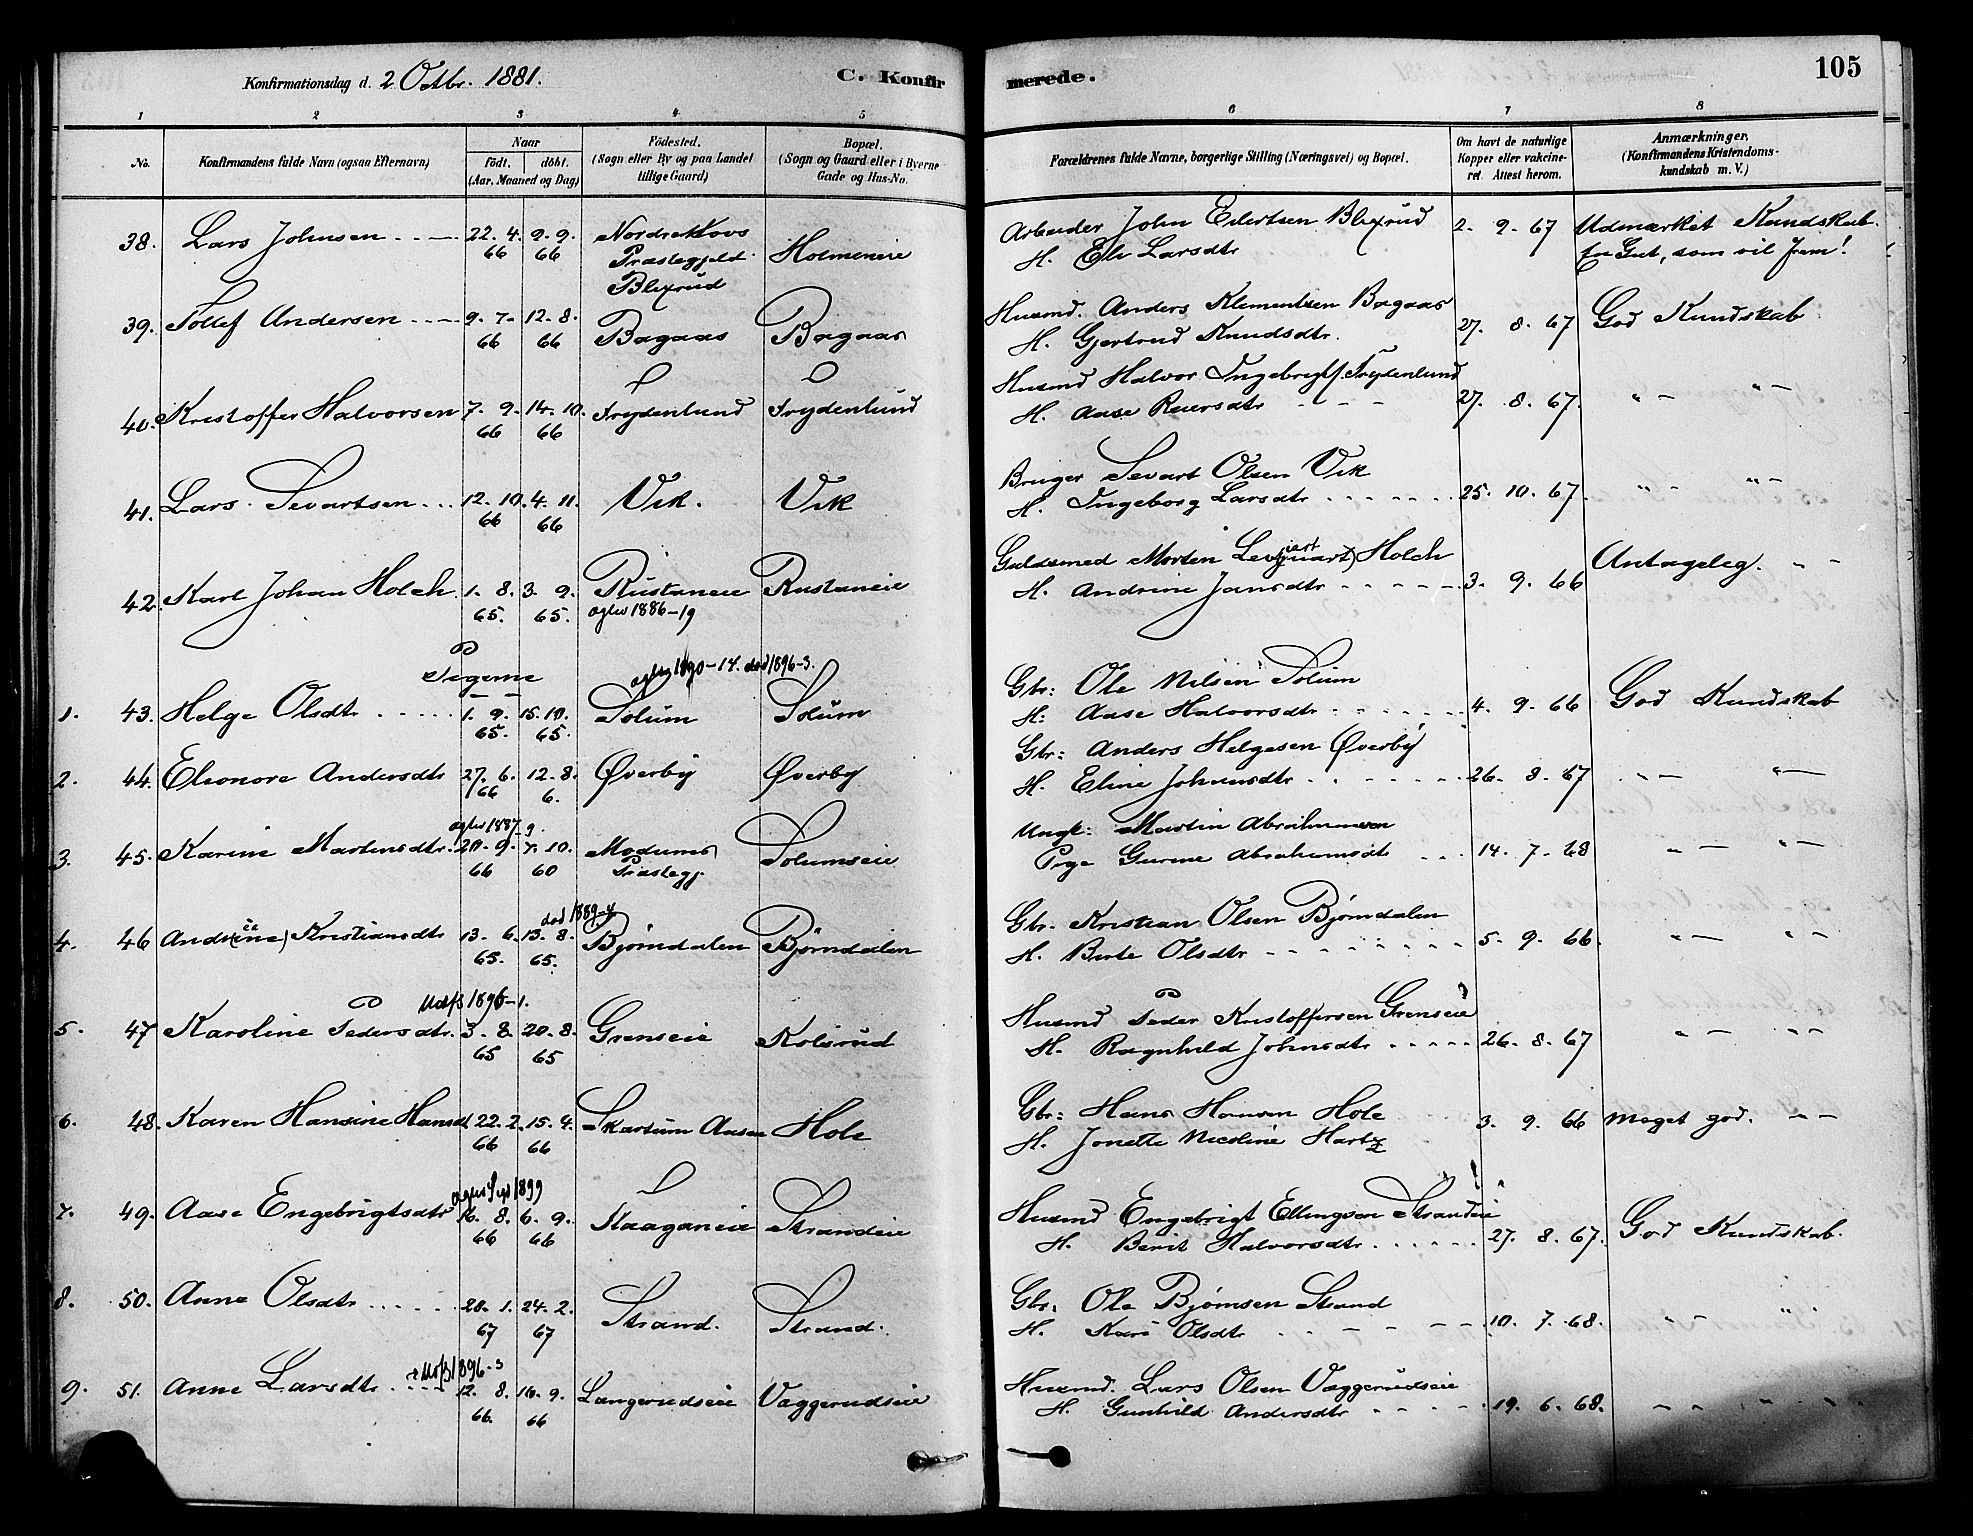 Konfirmationsdag d. 2 Octbr. 1881.
C. Konfirmerede.
105
1 2 3 4 5 6 7 8
No.
Konfirmandens fulde Navn (ogsaa Efternavn)
Naar
födt. döbt.
(Aar, Maaned og Dag)
Födested.
(Sogn eller By og paa Landet
tillige Gaard)
Bopæl.
(Sogn og Gaard eller i Byerne
Gade og Hus-No.
Forældrenes fulde Navne, borgerlige Stilling (Næringsvei) og Bopæl.
Om havt de naturlige
Kopper eller vakcine-
ret. Attest herom.
Anmærkninger.
(Konfirmandens Kristendoms-
kundskab m. V.)
38. Lars Johnsen 22. 4. 66 9. 9. 66 Nordrehovs Præstegjeld Blexrud Holmeneie
Arbeider John Eilertsen Blexrud 2. 9. 67 Udmærket Kundskab.
H. Eli Larsdtr En Gut, som vil frem!
39. Tollef Andersen 9. 7. 66 12. 8. 66 Bagaas Bagaas
Husmd. Anders Klementsen Bagaas 27. 8. 67 God Kundskab
H. Gjertrud Knudsdtr.
40. Kristoffer Halvorsen 7. 9. 66 14. 10. 66 Frydenlund Frydenlund
Husmd Halvor Ingebrigts. Frydenlund 27. 8. 67. " - " -
H. Aase Reiersdtr
41. Lars Sevartsen 12. 10. 66 4. 11. 66 Vik. Vik
Bruger Sevart Olsen Vik 25. 10. 67. " - " -
H. Ingeborg Larsdtr
42. Karl Johan Holch 1. 8. 65. 3. 9. 65. Rustaneie Rustaneie
agtev 1886-19
Guldsmed Morten Holch 3. 9. 66 Antagelig. " -
H. Andrine Jansdtr
Pigerne
agtev 1890-14. død 1896-3.
1. 43. Helge Olsdtr 1. 9. 65. 15. 10. 65. Solum Solum
Gbr: Ole Nilsen Solum 4. 9. 66 God Kundskab
H: Aase Halvorsdtr
2. 44. Eleonore Andersdtr 27. 6. 66 12. 8. 6. Øverby Øverby
Gbr: Anders Helgesen Øverby 26. 8. 67 " - " -
H. Eline Johnsdtr
agtev 1887-9.
3. 45. Karine Martinsdtr. 20. 9. 66 7. 10. 60 Modums Præstegj. Solumseie
Ungk: Martin Abrahamsen 14. 7. 68 " - " -
Pige Gurine Abrahamsdt
død 1889-4
4. 46 Andrine Kristiansdtr 13. 6. 65. 13. 8. 65. Bjørndalen Bjørndalen
Gbr. Kristian Olsen Bjørndalen 5. 9. 66. " - " -
H. Berte Olsdtr
Udfl 1896-1.
5. 47 Karoline Pedersdtr. 3. 8. 65 20. 8. 65 Grenseie Kolsrud
Husmd Peder Kristoffersen Grenseie 26. 8. 67 " - " -
H. Ragnhild Johnsdtr
6. 48. Karen Hansine Hansdt 22. 2. 66 15. 4. 66 Skartum Aasen Hole
Gbr: Hans Hansen Hole 3. 9. 66 Meget god. " -
H. Jonette Nicoline Hartz
1899
7. 49. Aase Engebrigtsdtr 16. 8. 66 6. 9. 66 Skaaganeie Strandeie
Husmd Engebrigt Ellingsen Strandeie 27. 8. 67. God Kundskab.
H. Berit Halvorsdtr
8. 50. Anne Olsdtr 28. 1. 67 24. 2. 67 Strand. Strand.
Gbr. Ole Bjørnsen Strand 10. 7. 68. " - " -
H. Kari Olsdtr
Udfl 1896-3
9. 51. Anne Larsdtr 12. 8. 66. 16. 9. 66 Langerudseie Væggerudseie
Husmd. Lars Olsen Væggerudseie 19. 6. 68. " - " -
H. Gunhild Andersdtr